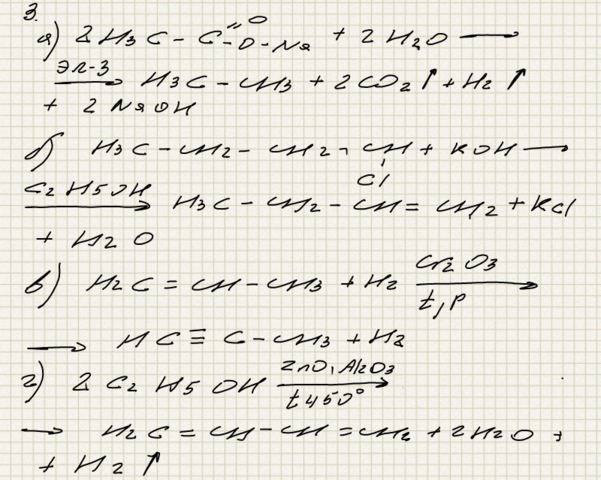 3.
а) 2H3C - C(=O)-O-Na + 2H2O ⟶
эл-з ⟶ H3C - CH3 + 2CO2↑ + H2↑
+ 2NaOH
б) H3C - CH2 - CH2 - CH(Cl) + KOH ⟶
C2H5OH ⟶ H3C - CH2 - CH = CH2 + KCl
+ H2O
в) H2C = CH - CH3 + H2 Cr2O3 t,p ⟶
⟶ HC ≡ C - CH3 + H2
г) 2C2H5OH ZnO, Al2O3 t450° ⟶
⟶ H2C = CH - CH = CH2 + 2H2O +
+ H2↑